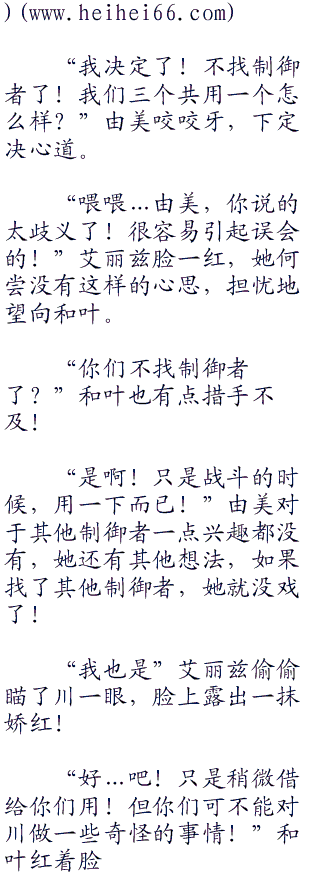 ) (www.heihei66.com)
“我决定了！不找制御
者了！我们三个共用一个怎
么样？”由美咬咬牙，下定
决心道。
“喂喂…由美，你说的
太歧义了！很容易引起误会
的！”艾丽兹脸一红，她何
尝没有这样的心思，担忧地
望向和叶。
“你们不找制御者
了？”和叶也有点措手不
及！
“是啊！只是战斗的时
候，用一下而已！”由美对
于其他制御者一点兴趣都没
有，她还有其他想法，如果
找了其他制御者，她就没戏
了！
“我也是”艾丽兹偷偷
瞄了川一眼，脸上露出一抹
娇红！
“好…吧！只是稍微借
给你们用！但你们可不能对
川做一些奇怪的事情！”和
叶红着脸